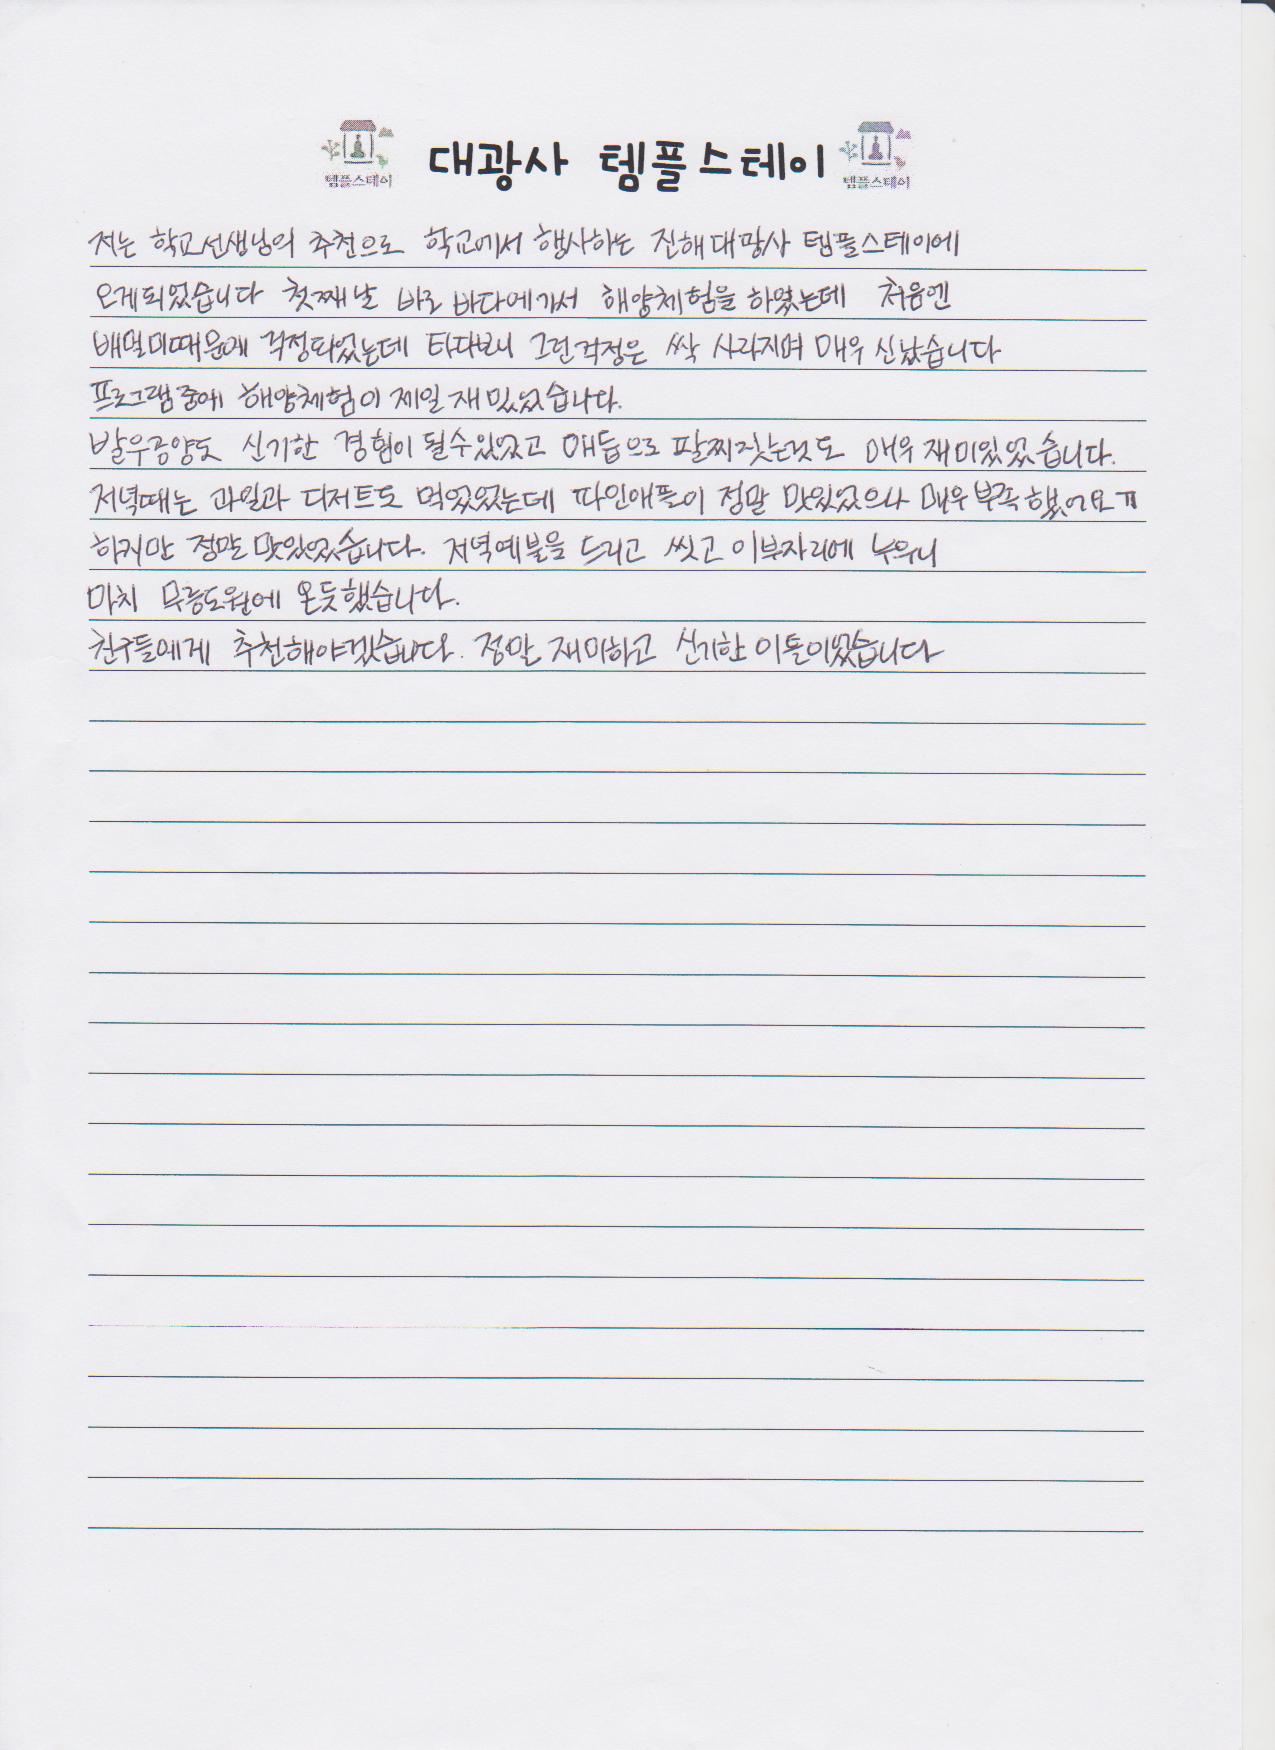 템플스테이 대광사 템플스테이 템플스테이
저는 학교선생님의 추천으로 학교에서 행사하는 진해대광사 템플스테이에
오게되었습니다 첫째날 바로 바다에가서 해양체험을 하였는데 처음엔
배멀미때문에 걱정되었는데 타다보니 그런걱정은 싹 사라지며 매우 신났습니다
프로그램중에 해양체험이 제일 재밌었습니다.
발우공양도 신기한 경험이 될수있었고 매듭으로 팔찌짓는것도 매우 재미있었습니다.
저녁때는 과일과 디저트도 먹었었는데 파인애플이 정말 맛있었으나 매우 부족했어요ㅠ
하지만 정말 맛있었습니다. 저녁예불을 드리고 씻고 이부자리에 누우니
마치 무릉도원에 온듯했습니다.
친구들에게 추천해야겠습니다. 정말 재미하고 신기한 이틀이였습니다